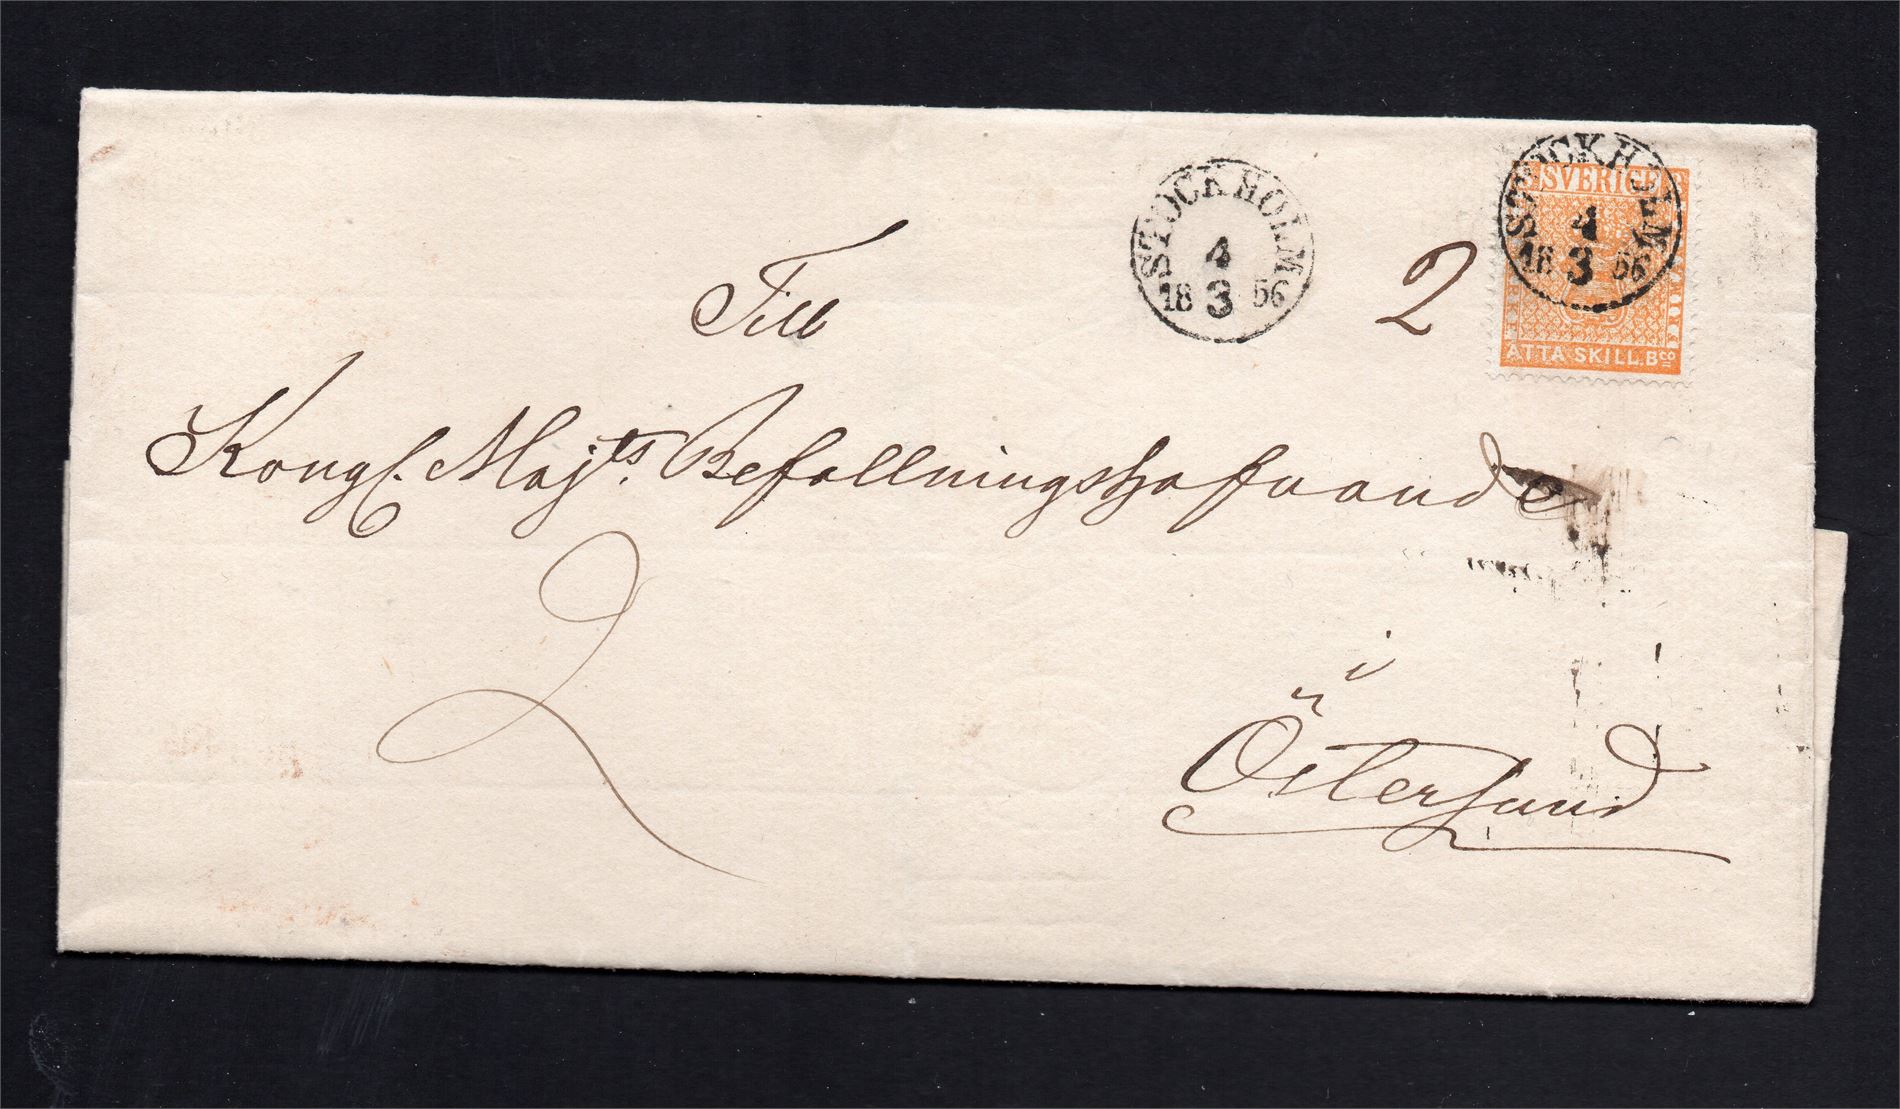 STOCKHOLM
4
18 3 56
STOCKHOLM
4
18 3 56
SVERIGE
ÅTTA SKILL. Bco
2
Till
Kongl. Maj:ts Befallningshafvande
2
i
Östersund